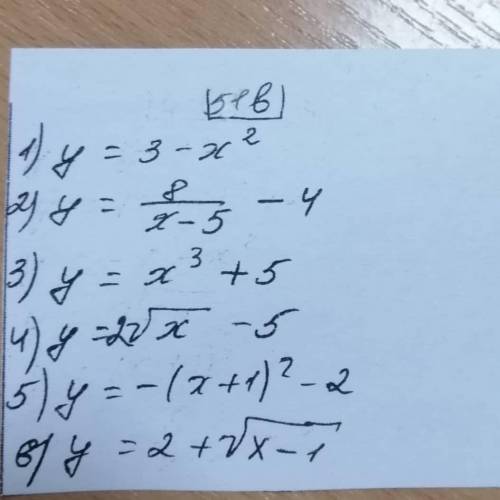 51в
1) y = 3 - x²
2) y = 8/(x-5) - 4
3) y = x³ + 5
4) y = 2√x - 5
5) y = -(x+1)² - 2
6) y = 2 + √(x-1)